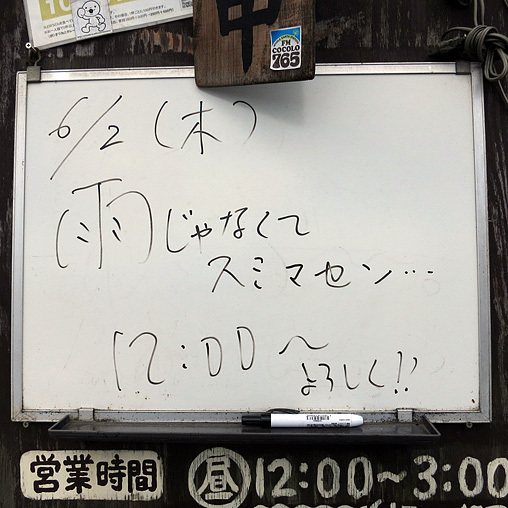 10
中
FM
COCOLO
765
6/2(木)
雨じゃなくて
スミマセン…
12:00〜
よろしく!!
営業時間 昼 12:00〜3:00